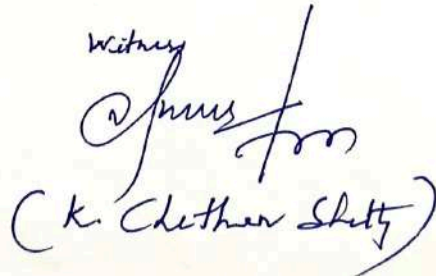 Witness
(K. Chethan Shetty)